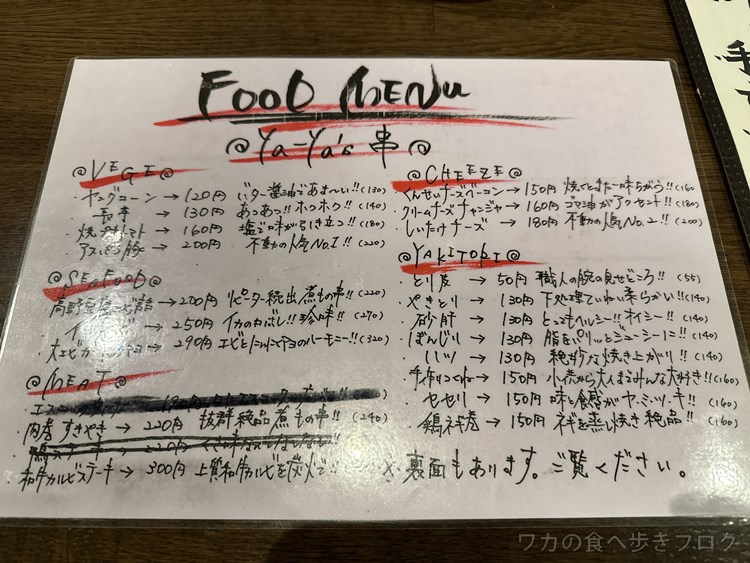 FOOD MENU
@Ya-Ya's 串@
@VEGE@
ヤングコーン→120円 バター醤油であま〜い!!(130)
長芋→130円 あつあつ!!ホクホク!!(140)
焼 トマト→160円 塩で味が引き立つ!!(180)
アスパラ豚→200円 不動の人気No.1!!(220)
@SEAFOOD@
→200円 リピーター続出煮もの串!!(220)
→250円 イカの 珍味!!(270)
大エビガーリックマヨ→290円 エビとにんにくマヨのハーモニー!!(320)
@MEAT@
肉巻すきやき→220円 抜群絶品煮もの串!!(240)
→220円
和牛カルビステーキ→300円 上質和牛カルビを炭火で!!
@CHEEZE@
くんせいチーズベーコン→150円 焼くとまた一味ちがう!!(160
クリームチーズチャンジャ→160円 ゴマ油がアクセント!!(180)
しいたけチーズ→180円 不動の人気No.2!!(200)
@YAKITORI@
とり皮→50円 職人の腕の見せどころ!!(55)
やきとり→130円 下処理ていねい柔らかい!!(140)
砂肝→130円 とってもヘルシー!!オイシー!!(140)
ぼんじり→130円 脂をパリッとジューシーに!!(140)
しいツ→130円 絶妙な焼き上がり!!(140)
手作りつくね→150円 小供から大人までみんな大好き!!(160)
セセリ→150円 味と食感がヤ・ミ・ツ・キ!!(160)
鶏ネギ巻→150円 ネギを蒸し焼き絶品!!(160)
※裏面もあります。ご覧ください。
手
ワカの食べ歩きブログ